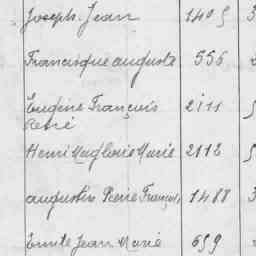 Joseph Jean 1405 3
Francisque auguste 556
Eugène François 2111 5
René
Henri Marie 2112 5
augustin Pierre François 1488 3
Emile Jean Marie 659